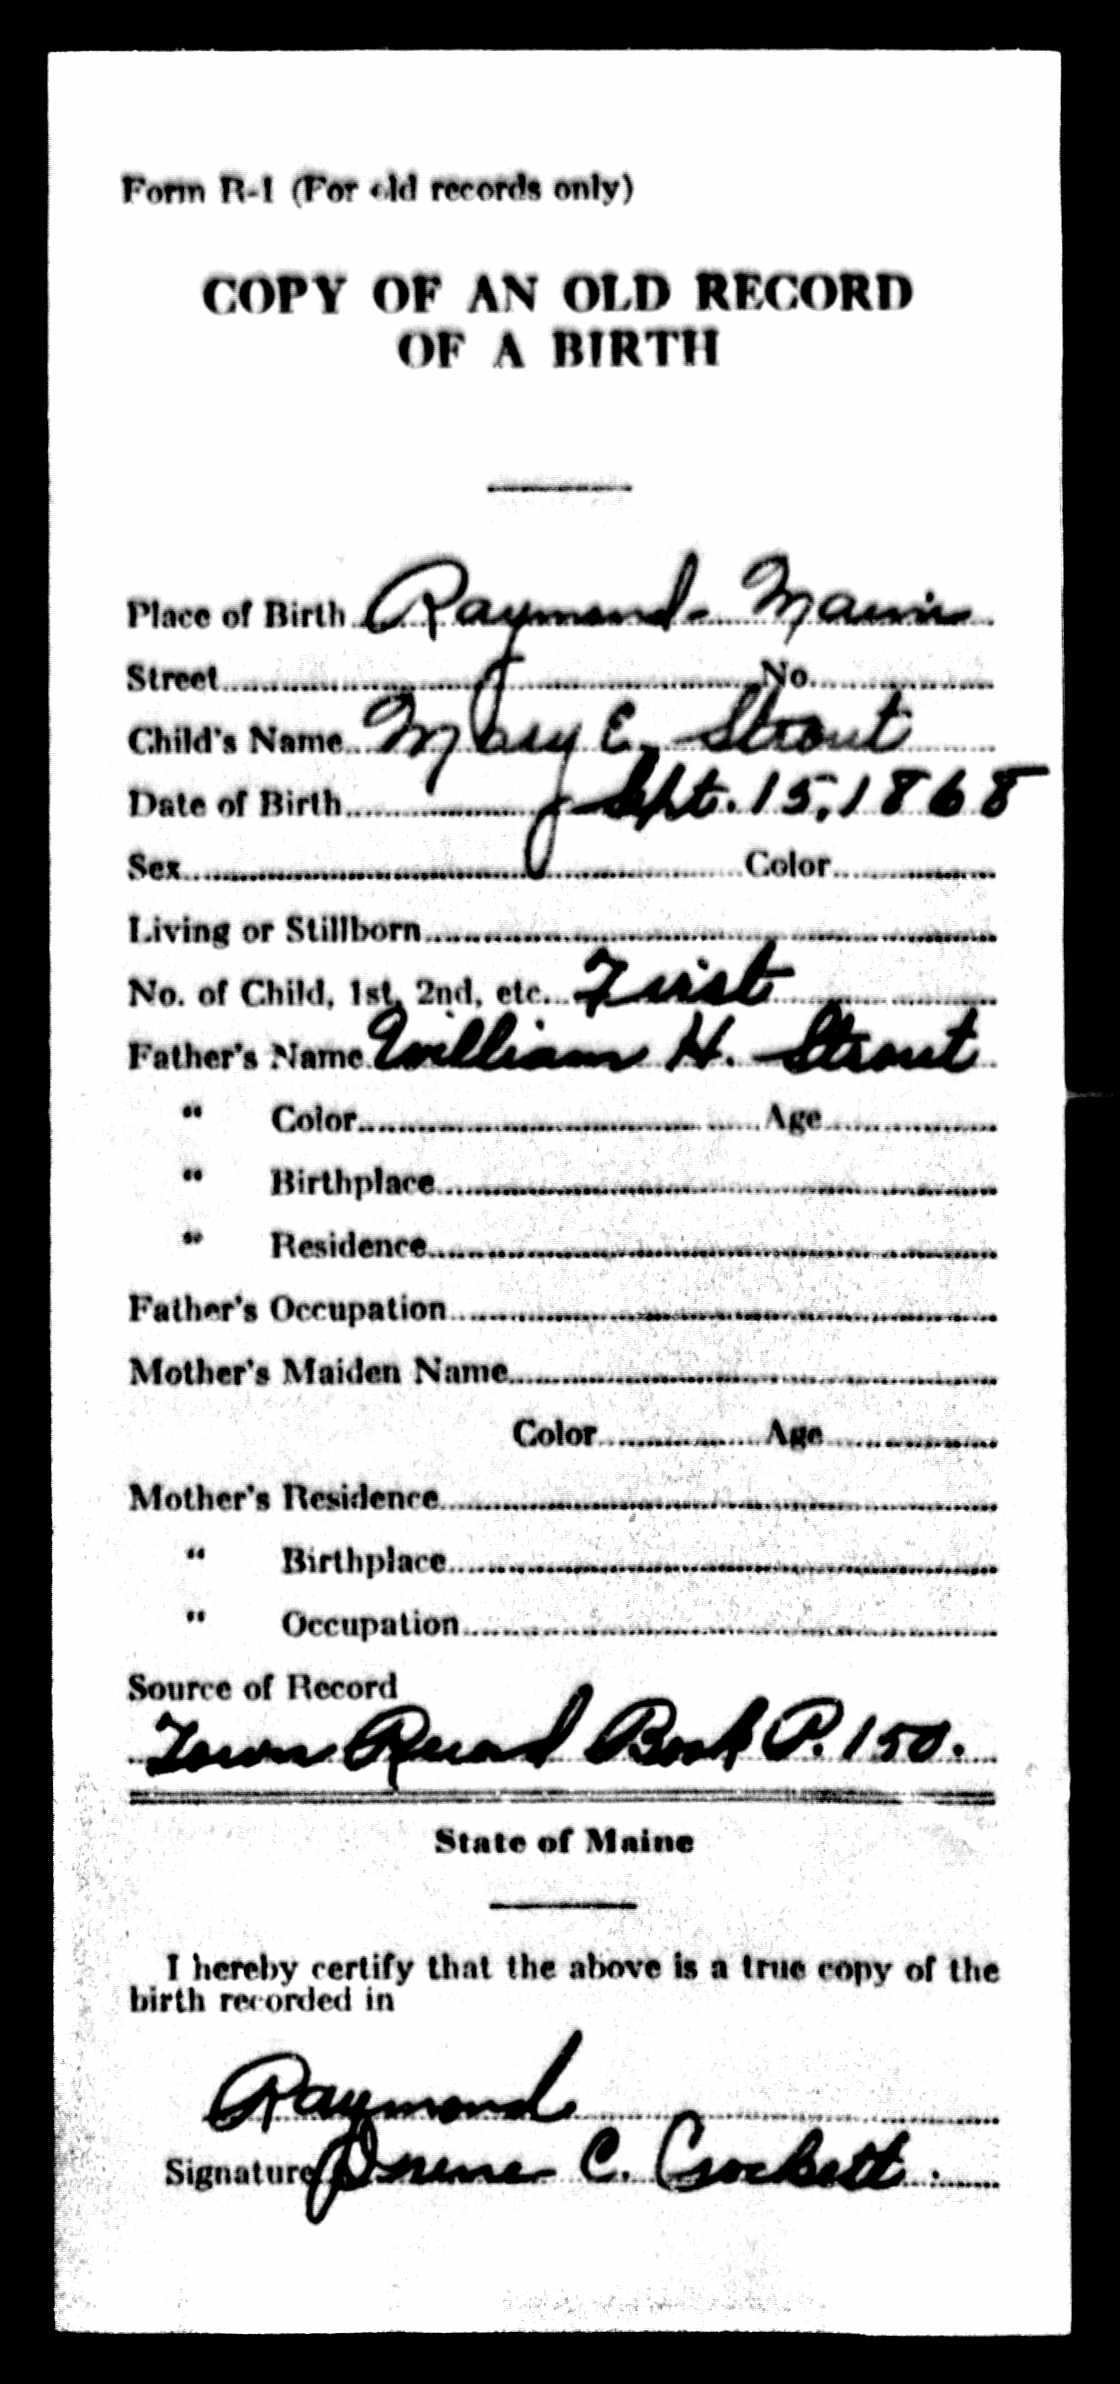 Form R-1 (For old records only)
COPY OF AN OLD RECORD
OF A BIRTH
Place of Birth Raymond Maine
Street No.
Child's Name Mary E. Strout
Date of Birth Sept. 15, 1868
Sex Color
Living or Stillborn
No. of Child, 1st, 2nd, etc. First
Father's Name William H. Strout
" Color Age
" Birthplace
" Residence
Father's Occupation
Mother's Maiden Name
Color Age
Mother's Residence
" Birthplace
" Occupation
Source of Record
Town Record Book P. 150.
State of Maine
I hereby certify that the above is a true copy of the
birth recorded in
Raymond
Signature Irene C. Crockett.